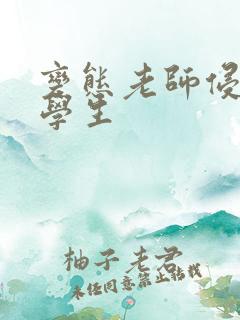 變態老師侵
學生
柚子老君
未經同意禁止轉載